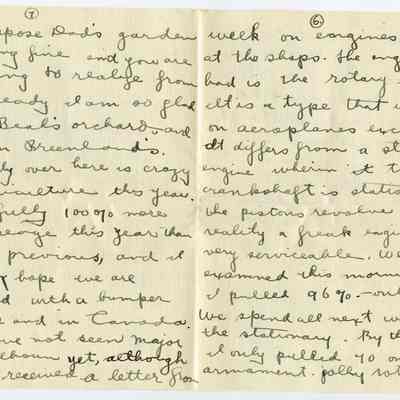 7
pose Dad's garden
fine and you are
to realize from
ready I am so glad
Beal's orchard and
Greenland's.
over here is crazy
this year.
fully 100% more
this year than
previous, and I
hope we are
with a bumper
and in Canada.
not seen Major
yet, although
received a letter from
6
week on engines
at the shops. The eng
had is the rotary
It is a type that
on aeroplanes exc
It differs from a st
engine wherein it t
crankshaft is statio
the pistons revolve
reality a freak engi
very serviceable. We
examined this morni
I pulled 96%.—on
We spend all next w
the stationary. By th
I only pulled 70 on
armament. jolly rot